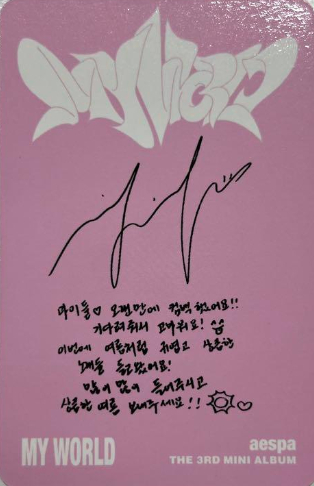 MY WORLD
마이들♡ 오랜만에 컴백했어요!!
기다려줘서 고마워요!
이번에 여름처럼 귀엽고 상큼한
노래를 들고왔어요!
많이 많이 들어주시고
상큼한 여름 보내주세요!!
MY WORLD
aespa
THE 3RD MINI ALBUM